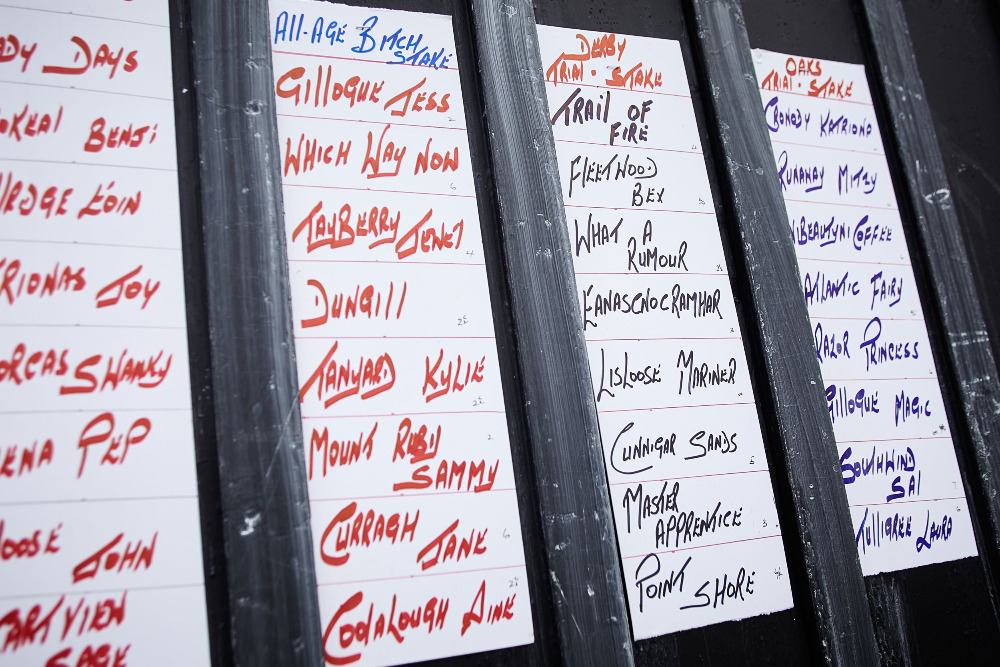 DAYS
BENJI
EOIN
JOY
SWANKY
PEP
JOHN
SAGE
ALL-AGE BITCH
STAKE
GILLOGUE JESS
WHICH WAY NOW
TAYBERRY JENET
DUNGILL
TANYARD KYLIE
MOUNT RUBY
SAMMY
CURRAGH JANE
COOLALOUGH AINE
DERBY
TRIAL . STAKE
TRAIL OF
FIRE
FLEETWOOD
BEX
WHAT A
RUMOUR
EANASCNOCRAMHAR
LISLOOSE MARINER
CUNNIGAR SANDS
MASTER
APPRENTICE
POINT SHORE
OAKS
TRIAL . STAKE
CRONODY KATRIONA
RUNAWAY MITZY
COFFEE
ATLANTIC FAIRY
RAZOR PRINCESS
GILLOGUE MAGIC
SOUTHWIND
SAI
TULLIGREE LAURA